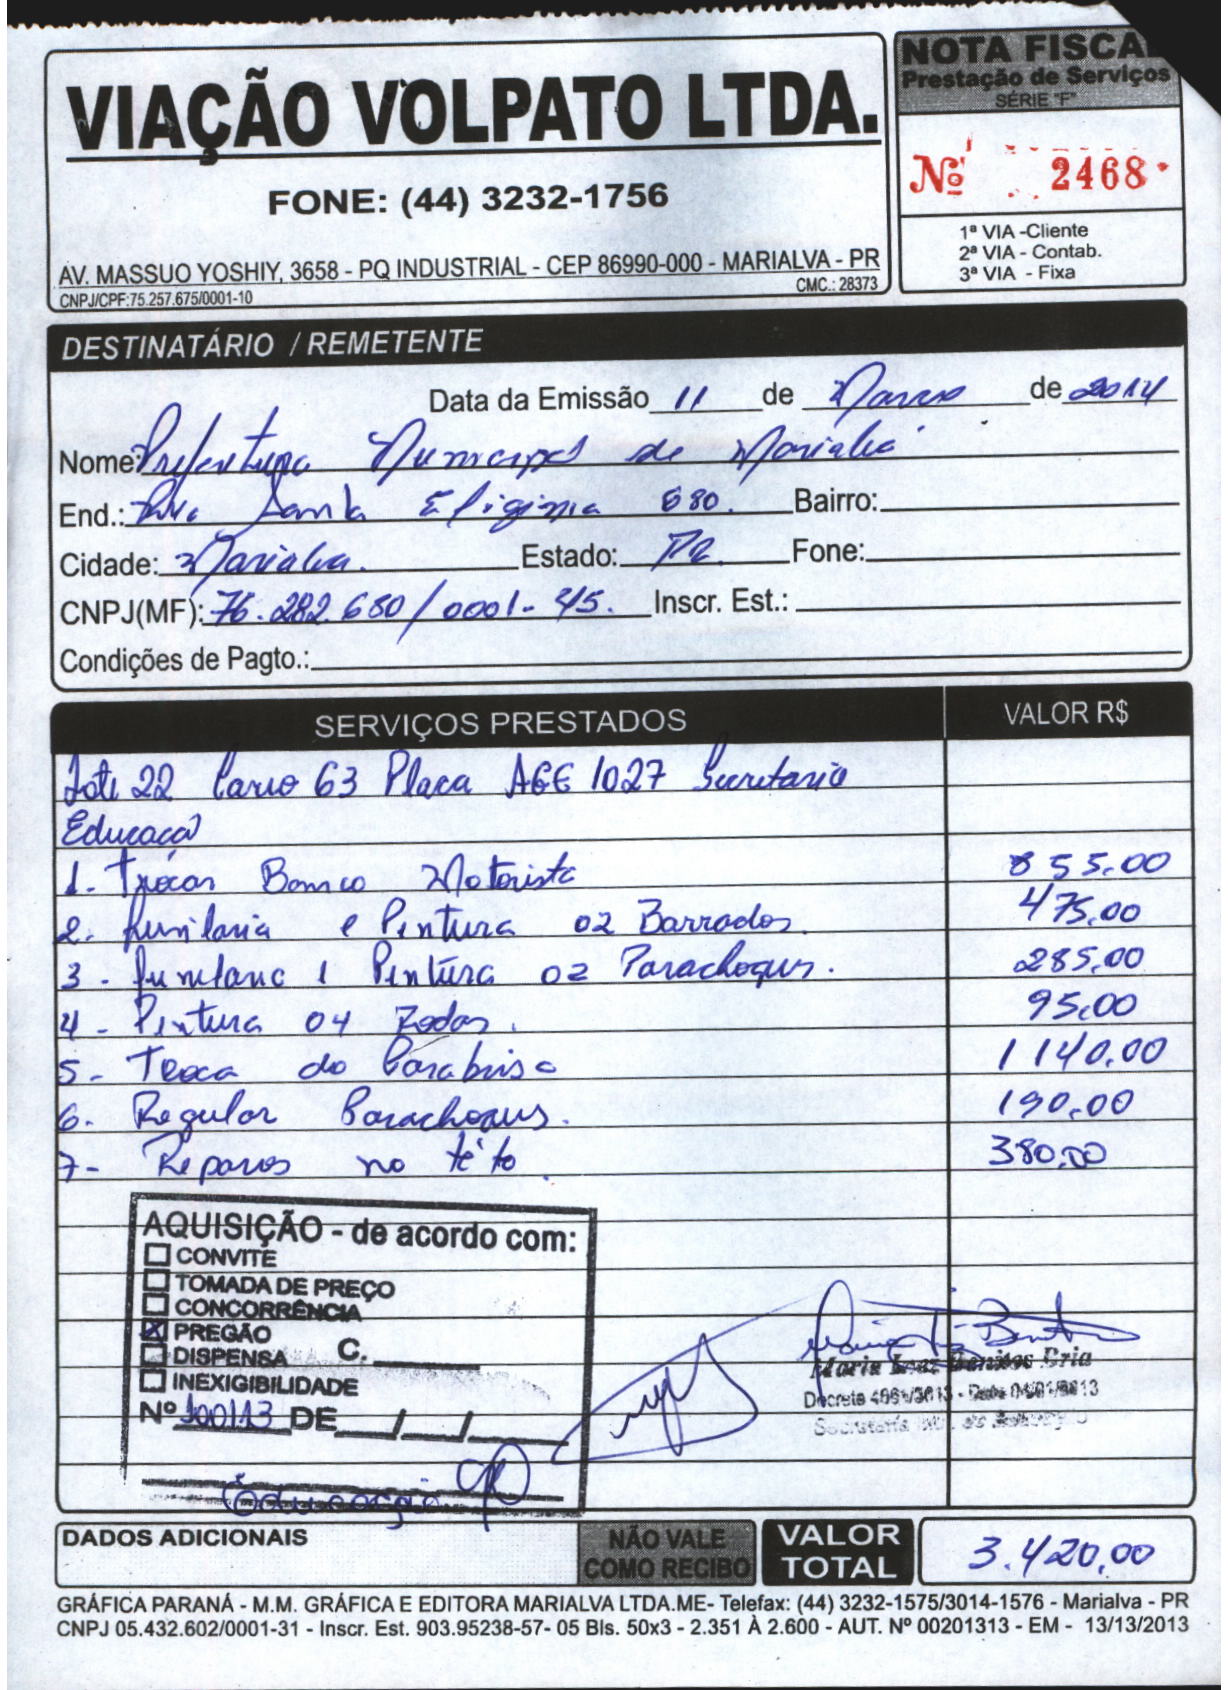 VIAÇÃO VOLPATO LTDA.
FONE: (44) 3232-1756
AV. MASSUO YOSHIY, 3658 - PQ INDUSTRIAL - CEP 86990-000 - MARIALVA - PR
CNPJ/CPF:75.257.675/0001-10 CMC.: 28373
NOTA FISCA
Prestação de Serviços
SÉRIE "F"
Nº 2468
1ª VIA -Cliente
2ª VIA - Contab.
3ª VIA - Fixa
DESTINATÁRIO / REMETENTE
Data da Emissão 11 de Março de 2014
Nome: Prefeitura Municipal de Marialva
End.: Rua Santa Efigênia 680. Bairro:
Cidade: Marialva. Estado: PR Fone:
CNPJ(MF): 76.282.680/0001-45. Inscr. Est.:
Condições de Pagto.:
SERVIÇOS PRESTADOS VALOR R$
Lote 22 Carro 63 Placa 1027 Secretaria
Educaçaõ
1- Trocar Banco Motorista 855,00
2- funilaria e Pintura 02 Barrados. 475,00
3- Pintura 02 Parachoques. 285,00
4- Pintura 04 Rodas. 95,00
5- Troca do Parabrisa 1140,00
6- Regular Parachoques. 190,00
7- Reparos no této. 380,00
AQUISIÇÃO - de acordo com:
CONVITE
TOMADA DE PREÇO
CONCORRÊNCIA
X PREGÃO
DISPENSA C.
INEXIGIBILIDADE
Nº 100113 DE / /
Educação
Decreto - Data
DADOS ADICIONAIS
NÃO VALE
COMO RECIBO
VALOR
TOTAL
3.420,00
GRÁFICA PARANÁ - M.M. GRÁFICA E EDITORA MARIALVA LTDA.ME- Telefax: (44) 3232-1575/3014-1576 - Marialva - PR
CNPJ 05.432.602/0001-31 - Inscr. Est. 903.95238-57- 05 Bls. 50x3 - 2.351 À 2.600 - AUT. Nº 00201313 - EM - 13/13/2013